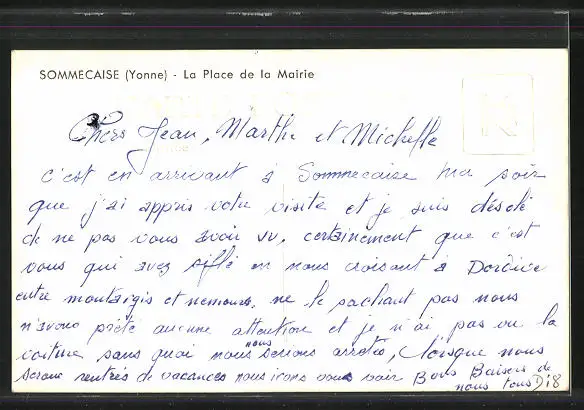 SOMMECAISE (Yonne) - La Place de la Mairie
Chers Jean, Marthe et Michelle
c'est en arrivant à Sommecaise soir
que j'ai appris votre visite et je suis désolé
de ne pas vous avoir vu, certainement que c'est
vous qui avez sifflé en nous croisant à Dordive
entre montargis et nemours, ne le sachant pas nous
n'avons prêté aucune attention et je n'ai pas vu la
voiture sans quoi nous nous serions arrêtés, lorsque nous
serons rentrés de vacances nous irons vous voir Bons Baisers de
nous tous